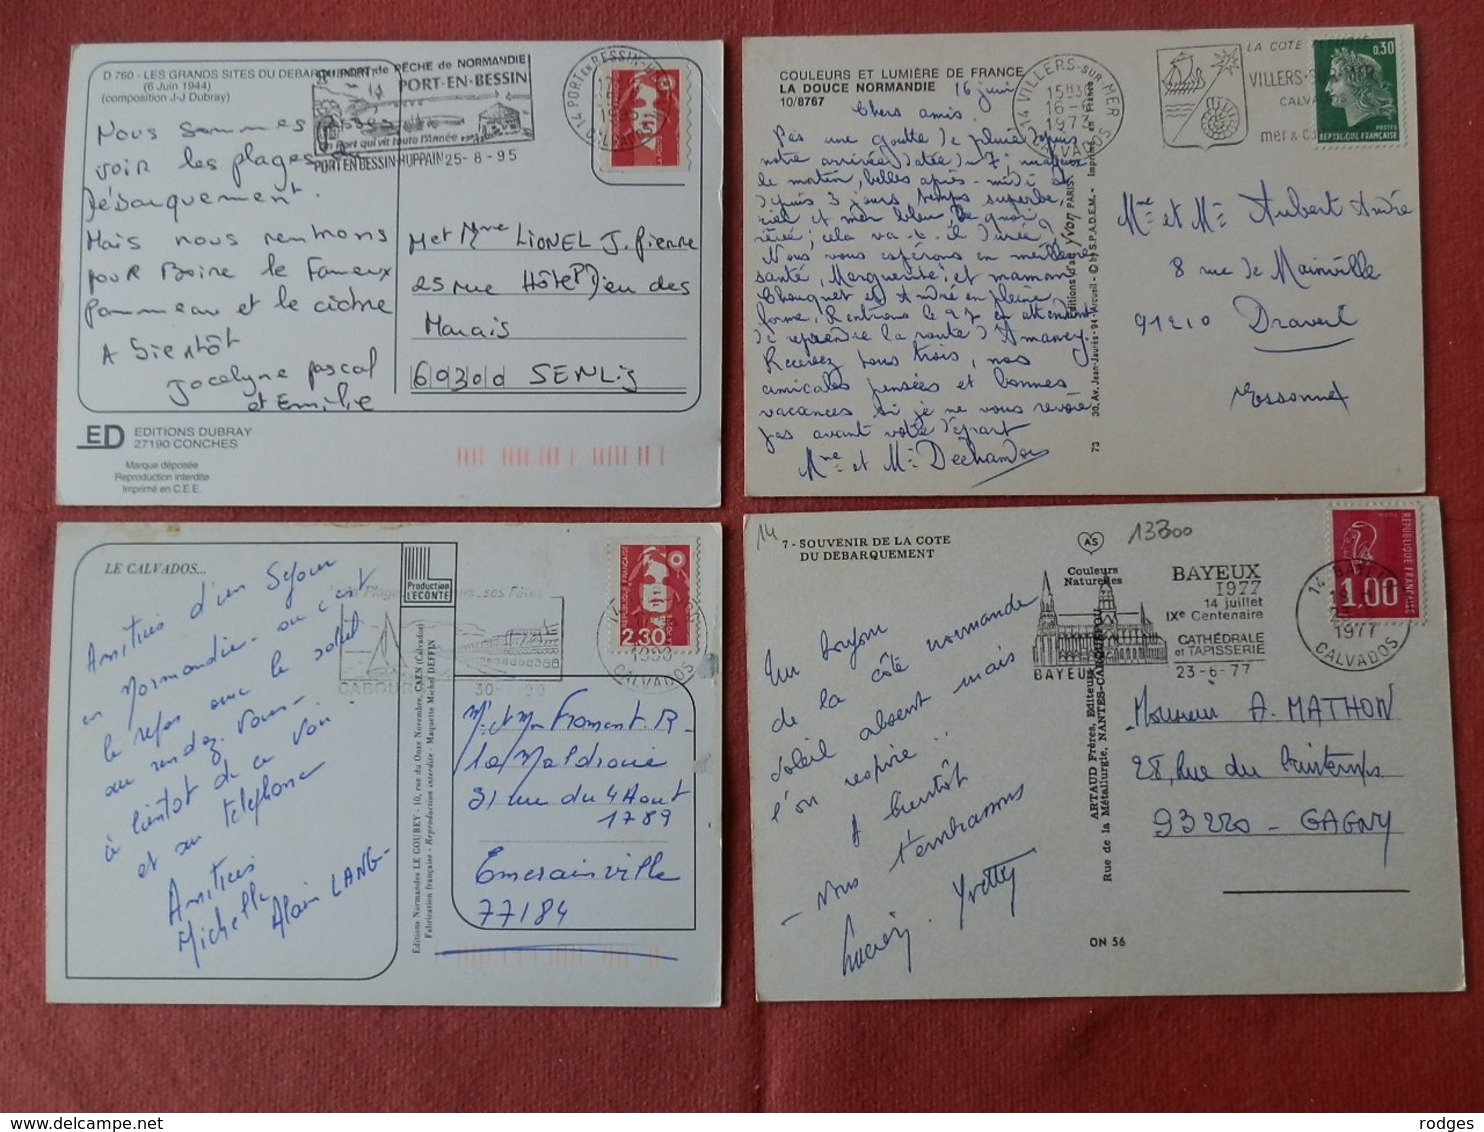 D 760 - LES GRANDS SITES DU DEBARQUEMENT
(6 Juin 1944)
(composition J-J Dubray)
PORT de PÊCHE de NORMANDIE
PORT-EN-BESSIN
un Port qui vit toute l'Année
PORT EN BESSIN HUPPAIN 25-8-95
14 PORT EN BESSIN-H
Nous sommes
voir les plages
Débarquement.
Mais nous rentrons
pour Boire le Fameux
Pommeau et le cidre
A Bientôt
Jocelyne pascal
et Emilie
M et Mme LIONEL J. Pierre
25 rue Hôtel Dieu des
Marais
60300 SENLIS
ED EDITIONS DUBRAY
27190 CONCHES
Marque déposée
Reproduction interdite
Imprimé en C.E.E.
COULEURS ET LUMIÈRE DE FRANCE
LA DOUCE NORMANDIE
10/8767
16 juin
Chers amis.
Pas une goutte de pluie depuis
notre arrivée
le matin, belles après-midi et
depuis 3 jours temps superbe,
ciel et mer bleu, de quoi
rêver; cela va-t-il durer?
Nous vous espérons en meilleure
santé, Marguerite, et maman
Chouquet et André en pleine
forme. Rentrerons le 27 en attendant
de reprendre la route d'Amancy.
Recevez tous trois, nos
amicales pensées et bonnes
vacances si je ne vous revois
pas avant votre départ
Mme et Mr Dechandon
Editions d'art YVON PARIS.
30, Av. Jean-Jaurès - 94 - Arcueil - © by S.P.A.D.E.M. - Imprimé en France
73
14 VILLERS-SUR-MER
15H30
16-6
1973
CALVADOS
LA COTE FLEURIE
VILLERS-SUR-MER
CALVADOS
mer &
0,30
POSTES
REPUBLIQUE FRANÇAISE
Mme et Mr Aubert André
8 rue de Mainville
91210 Draveil
Essonne
LE CALVADOS...
Production
LECONTE
ses Plages ses Fêtes
CABOURG 30- -90
1990
CALVADOS
REPUBLIQUE FRANÇAISE
2,30
Amitiés d'un séjour
en Normandie - où c'est
le repos avec le soleil
au rendez-vous -
à bientôt de se voir
et au téléphone
Amitiés
Michelle Alain LANG-
Editions Normandes LE GOUBEY - 10, rue du Onze Novembre, CAEN (Calvados)
Fabrication française - Reproduction interdite - Maquette Michel DEFFIN
Mr et Mme Froment. R
La Maldroue
31 rue du 4 Aout
1789
Emerainville
77184
14
7 - SOUVENIR DE LA COTE
DU DEBARQUEMENT
AS
Couleurs
Naturelles
13300
BAYEUX
1977
14 juillet
IXe Centenaire
CATHÉDRALE
et TAPISSERIE
BAYEUX 23-6-77
1977
CALVADOS
REPUBLIQUE FRANÇAISE
1,00
Un bonjour
de la côte normande
soleil absent mais
l'on respire..
A bientôt
- Nous t'embrassons
Lucien. Yvette
ARTAUD Frères, Editeurs
Rue de la Métallurgie, NANTES-CARQUEFOU
ON 56
Monsieur A. MATHON
28, Rue du Printemps
93220 - GAGNY
rodges